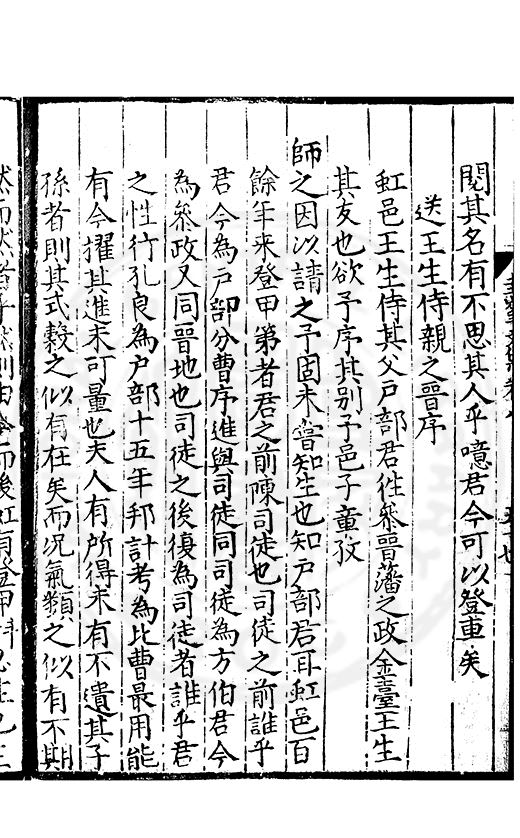 閱其名有不思其人乎噫君今可以登車矣
送王生侍親之晉序
虹邑王生侍其父戶部君徃叅晉藩之政金臺王生
其友也欲予序其别予邑子童孜
師之因以請之予固未嘗知生也知戶部君耳虹邑百
餘年来登甲第者君之前陳司徒也司徒之前誰乎
君今為戸部分曹序進與司徒同司徒為方伯君今
為叅政又同晉地也司徒之後復為司徒者誰乎君
之性行孔良為户部十五年邦計考為比曹最用能
有今擢其進未可量也夫人有所得未有不遺其子
孫者則其式穀之似有在矣而况氣類之似有不期